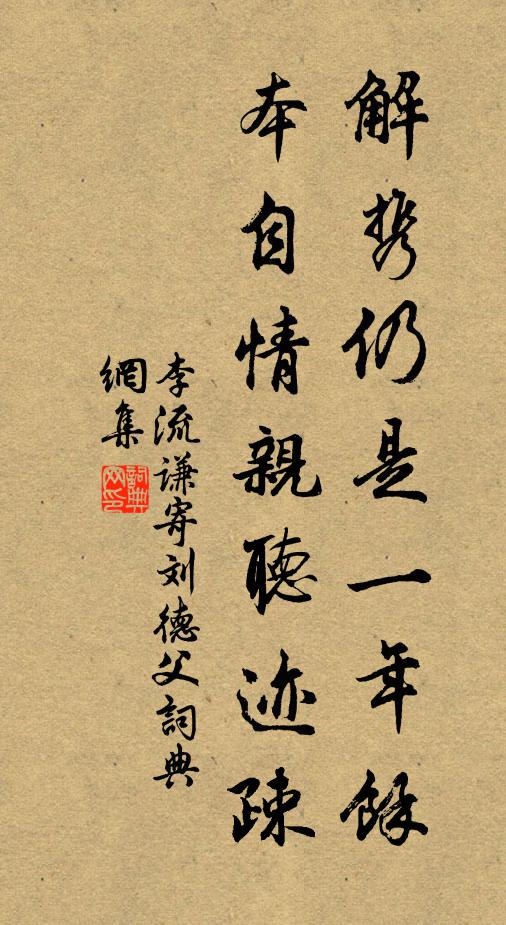 解携仍是一年餘
本自情親聽迹疎
李流谦寄刘德父詞典
網集
詞典網印